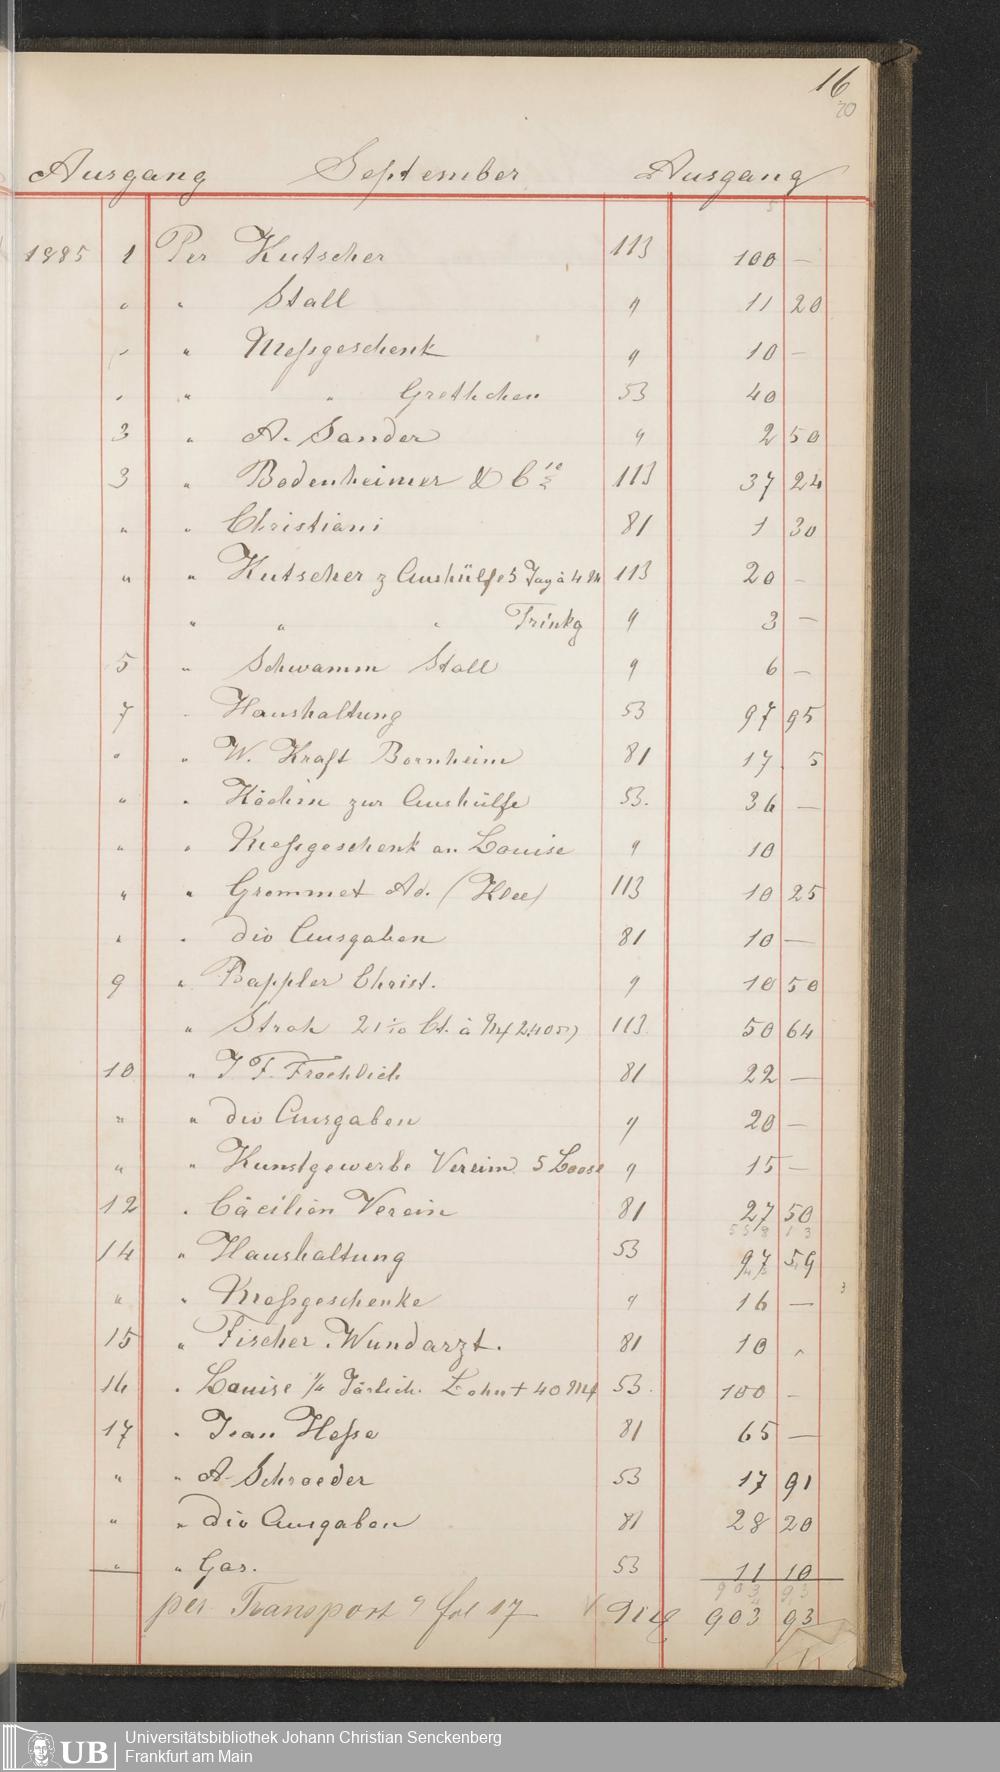 16
20
Ausgang September Ausgang
1885 1 Per Kutscher 113 100 —
" " Stall " 11 20
" " Meßgeschenk " 10 —
" " " Grethchen 53 40
3 " A. Sander " 2 50
3 " Bodenheimer & Cie 113 37 24
" " Christiani 81 1 30
" " Kutscher z Aushülfe 5 Tag à 4 M 113 20 —
" " " Trinkg " 3 —
5 " Schwamm Stall " 6 —
7 " Haushaltung 53 97 95
" " W. Kraft Bornheim 81 17 5
" " Köchin zur Aushülfe 53. 36 —
" " Meßgeschenk an Louise " 10
" " Grommet Ad. (Klee) 113 10 25
" " div Ausgaben 81 10 —
9 " Bappler Christ. " 10 50
" Stroh 21 1/10 Ct. à M 2.40 113 50 64
10 " J F. Froehlich 81 22 —
" " div Ausgaben " 20 —
" " Kunstgewerbe Verein 5 Loose " 15 —
12 " Cäcilien Verein 81 27 50
558 13
14 " Haushaltung 53 97 59
" " Meßgeschenke " 16 —
15 " Fischer Wundarzt. 81 10 "
16 " Louise 1/4 Järlich. Lohn + 40 M 53. 100 —
17 " Jean Hesse 81 65 —
" " A. Schroeder 53 17 91
" " div Ausgaben 81 28 20
" " Gas. 53 11 10
903 93
per Transport " fol 17 903 93
Universitätsbibliothek Johann Christian Senckenberg
UB Frankfurt am Main